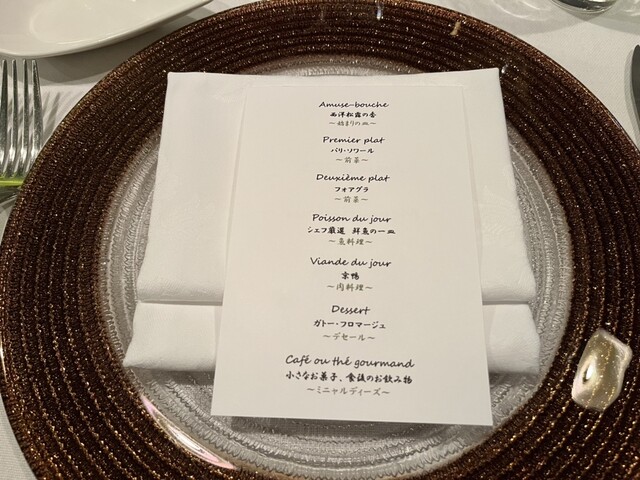 Amuse-bouche
西洋松露の香
～始まりの皿～
Premier plat
パリ・ソワール
～前菜～
Deuxième plat
フォアグラ
～前菜～
Poisson du jour
シェフ厳選 鮮魚の一皿
～魚料理～
Viande du jour
京鴨
～肉料理～
Dessert
ガトー・フロマージュ
～デセール～
Café ou thé gourmand
小さなお菓子、食後のお飲み物
～ミニャルディーズ～